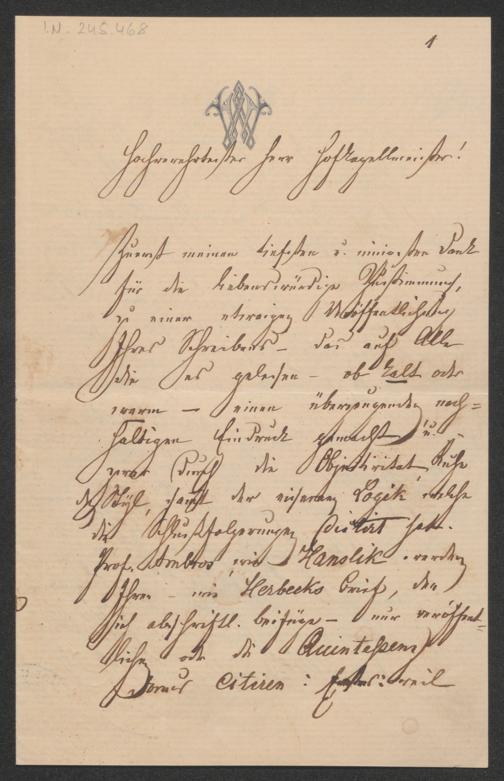 I.N. 245.468
1
Hochverehrtester Herr Hofkapellmeister!
Zuerst meinen tiefsten u. innigsten Dank
für die liebenswürdige Zustimmung,
zu einer etwaigen Veröffentlichung
Ihres Schreibens – das auf Alle
die es gelesen – ob kalt oder
warm – einen überzeugenden nach=
haltigen Eindruck gemacht u.
zwar durch die Objectivität, Ruhe
des Styl, samt der eisernen Logik welche
die Schlußfolgerungen dictirt hat.
Prof. Ambros wie Hanslik werden
Ihren – wie Herbecks Brief, den
ich abschriftl. beifüge – nur veröffent=
lichen oder die Quintessenz
daraus citiren: weil